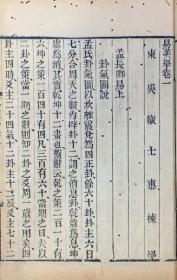 易漢學卷一
東吳徵士惠棟學
孟長卿易上
卦氣圖說
孟氏卦氣圖以坎離震兌爲四正卦餘六十卦卦主六日
七分合周天之數內辟卦十二謂之消息卦乾盈爲息坤
虛爲消其實乾坤十二畫也繫辭云乾之策二百一十有
六坤之策一百四十有四凡三百有六十當期之日夫以
二卦之策當一期之數則知二卦之爻周一歲之用矣四
卦主四時爻主二十四氣十二卦主十二辰爻主七十二